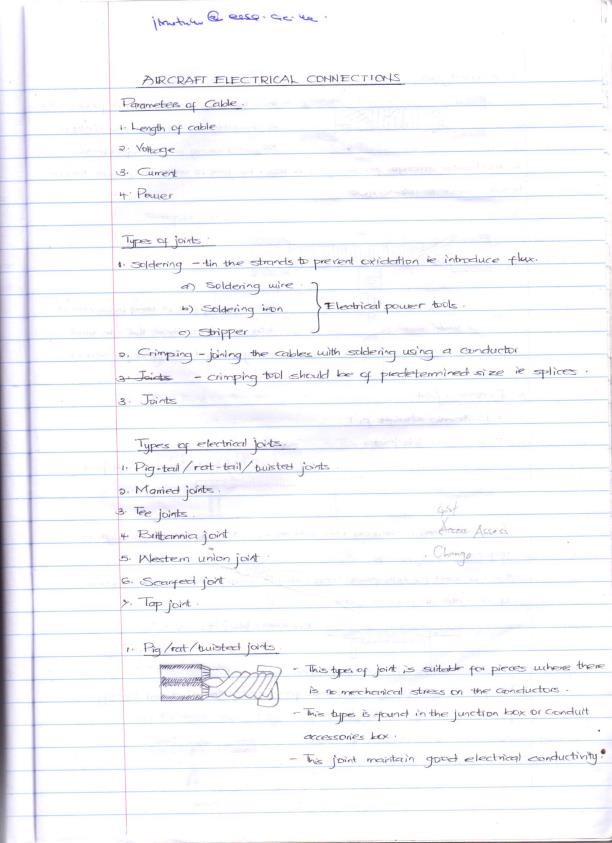 AIRCRAFT ELECTRICAL CONNECTIONS
Parameters of Cable.
1. Length of cable
2. Voltage
3. Current
4. Power
Types of joints.
1. Soldering - tin the strands to prevent oxidation ie introduce flux.
a) Soldering wire
b) Soldering iron
Electrical power tools.
c) Stripper
2. Crimping - joining the cables with soldering using a conductor
3. Joints - crimping tool should be of predetermined size ie splices.
3. Joints
Types of electrical joits.
1. Pig-tail/rat-tail/twisted joints
2. Married joints.
3. Tee joints.
4. Brittannia joint
5. Western union joint
6. Scarfed joint
7. Tap joint.
Access
Change
1. Pig/rat/twisted joints.
- This types of joint is suitable for pieces where there
is no mechanical stress on the conductors.
- This types is found in the junction box or conduit
accessories box.
- This joint maintain good electrical conductivity.